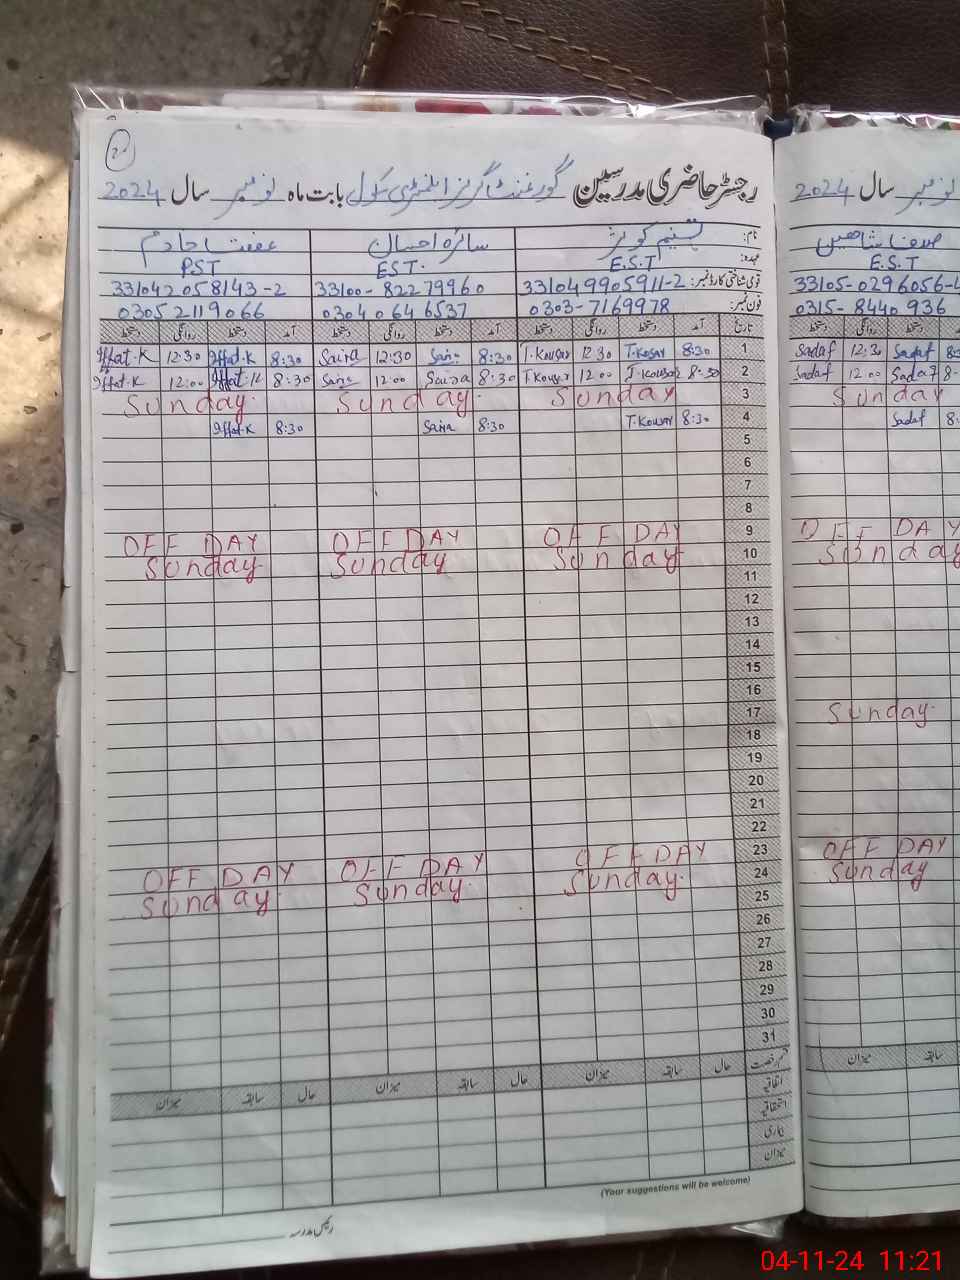 رجسٹر حاضری مدرسین گورنمنٹ گرلز ایلیمنٹری سکول بابت ماہ نومبر سال 2024
نام: تسنیم کوثر سائرہ احسان عفت خادم
عہدہ: E.S.T EST. PST
قومی شناختی کارڈ نمبر: 331049905911-2 33100-82279960 331042058143-2
فون نمبر: 0303-7169978 0304 0646537 0305 2119066
تاریخ آمد دستخط روانگی دستخط آمد دستخط روانگی دستخط آمد دستخط روانگی دستخط
1 8:30 T.Kosar 12:30 T.Kousar 8:30 Saira 12:30 Saira 8:30 Iffat.K 12:30 Iffat.K
2 8:30 T.Kousar 12:00 T.Kousar 8:30 Saira 12:00 Saira 8:30 Iffat.K 12:00 Iffat.K
3 Sunday Sunday Sunday
4 8:30 T.Kousar 8:30 Saira 8:30 Iffat.K
5
6
7
8
9 OFF DAY OFF DAY OFF DAY
10 Sunday Sunday Sunday
11
12
13
14
15
16
17
18
19
20
21
22
23 OFF DAY OFF DAY OFF DAY
24 Sunday Sunday Sunday
25
26
27
28
29
30
31
قسم رخصت حال سابقہ میزان حال سابقہ میزان حال سابقہ میزان
اتفاقیہ
استحقاقیہ
بیماری
میزان
(Your suggestions will be welcome)
رئیس مدرسہ
سال 2024
صدف شاہین
E.S.T
33105-0296056-4
0315-8440936
دستخط روانگی دستخط
Sadaf 12:30 Sadaf
Sadaf 12:00 Sadaf
Sunday
Sadaf
OFF DAY
Sunday
Sunday
OFF DAY
Sunday
میزان سابقہ
04-11-24 11:21